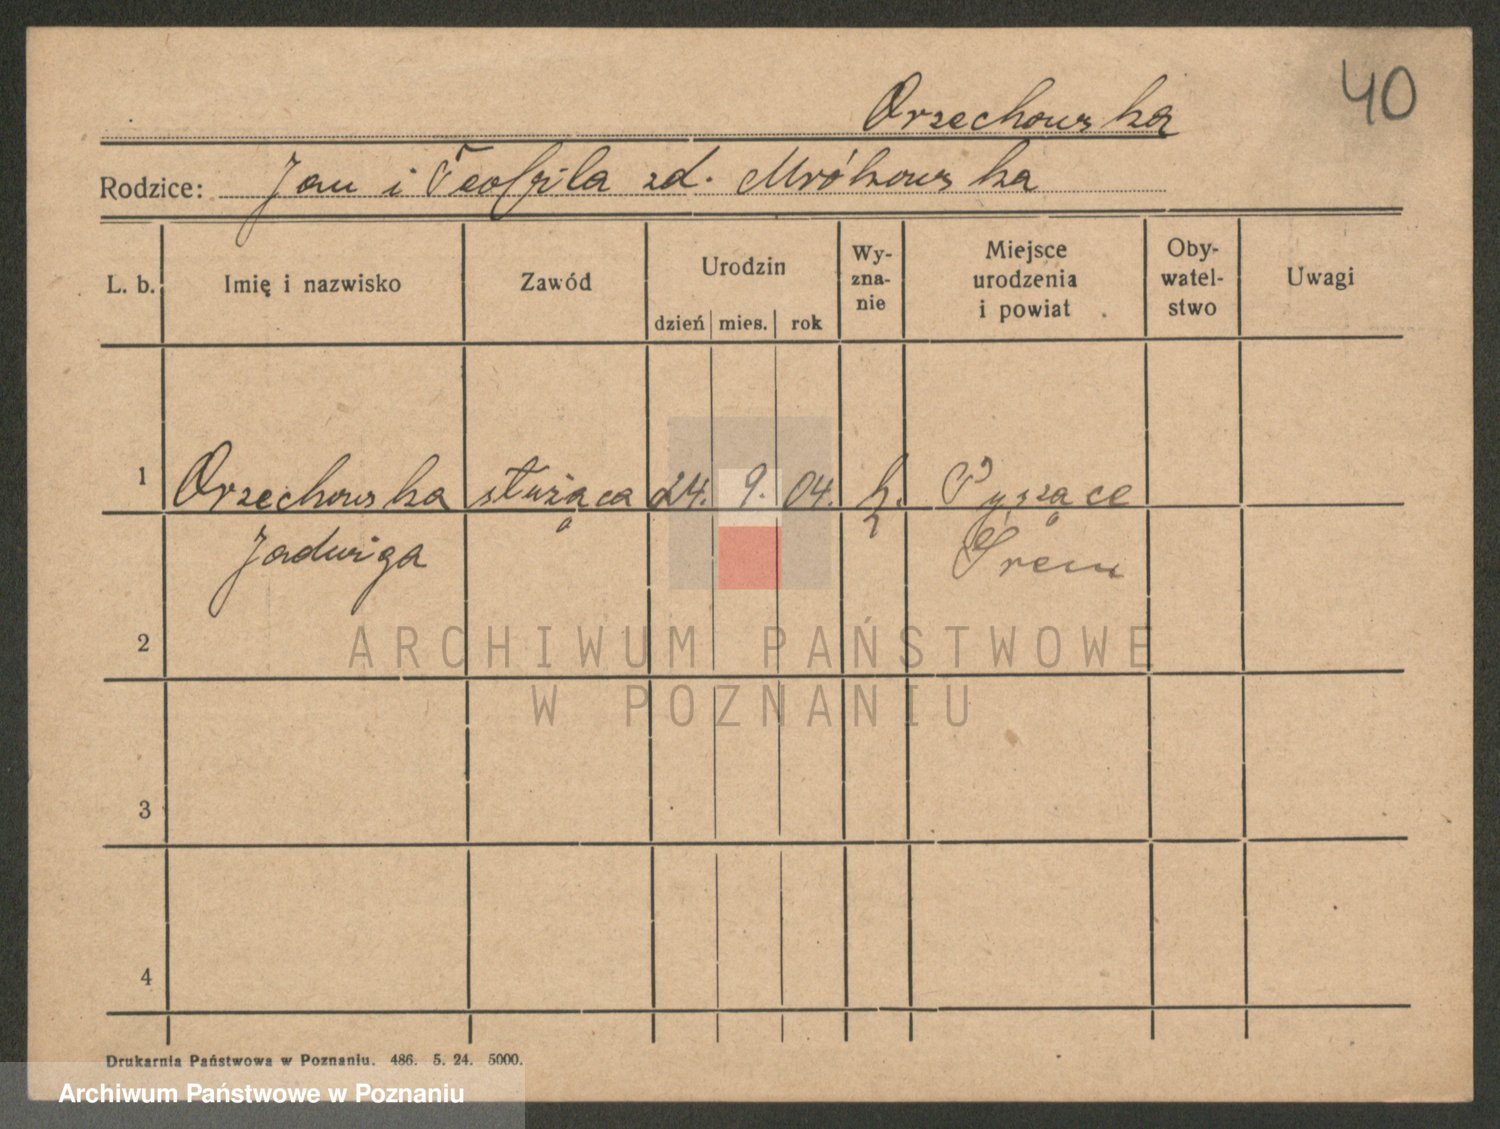 40
Orzechowska
Rodzice: Jan i Teofila zd. Mrókowska
L. b.
Imię i nazwisko
Zawód
Urodzin
dzień mies. rok
Wy-
zna-
nie
Miejsce
urodzenia
i powiat
Oby-
watel-
stwo
Uwagi
1 Orzechowska służąca 24. 9. 04. k. Pyszące
Jadwiga Śrem
2
3
4
Drukarnia Państwowa w Poznaniu. 486. 5. 24. 5000.
ARCHIWUM PAŃSTWOWE
W POZNANIU
Archiwum Państwowe w Poznaniu